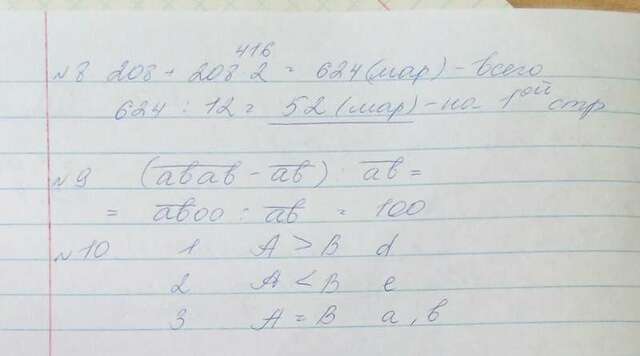 416
№8 208 + 208 · 2 = 624 (мар) - всего
624 : 12 = 52 (мар) - на 1ой стр
№9 (abab - ab) : ab =
= ab00 : ab = 100
№10 1 A > B d
2 A < B e
3 A = B a, b